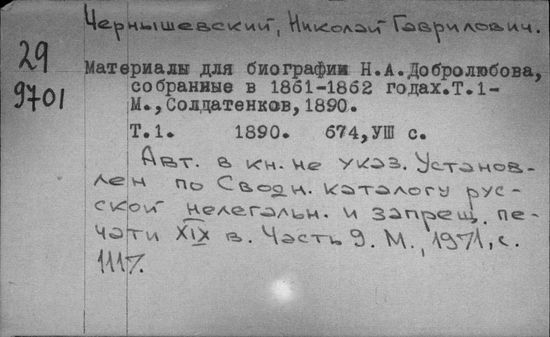 Чернышевский, Николай Гаврилович.
29
9701
Материалы для биографии Н.А.Добролюбова,
собранные в 1861-1862 годах.Т.1-
М.,Солдатенков,1890.
Т.1. 1890. 674,УШ с.
Авт. в кн. не указ. Установ-
лен по Сводн. каталогу рус-
ской нелегальн. и запрещ. пе-
чати XIX в. Часть 9. М., 1971, с.
1117.